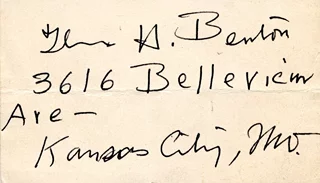 Thos H. Benton
3616 Belleview
Ave—
Kansas City, Mo.